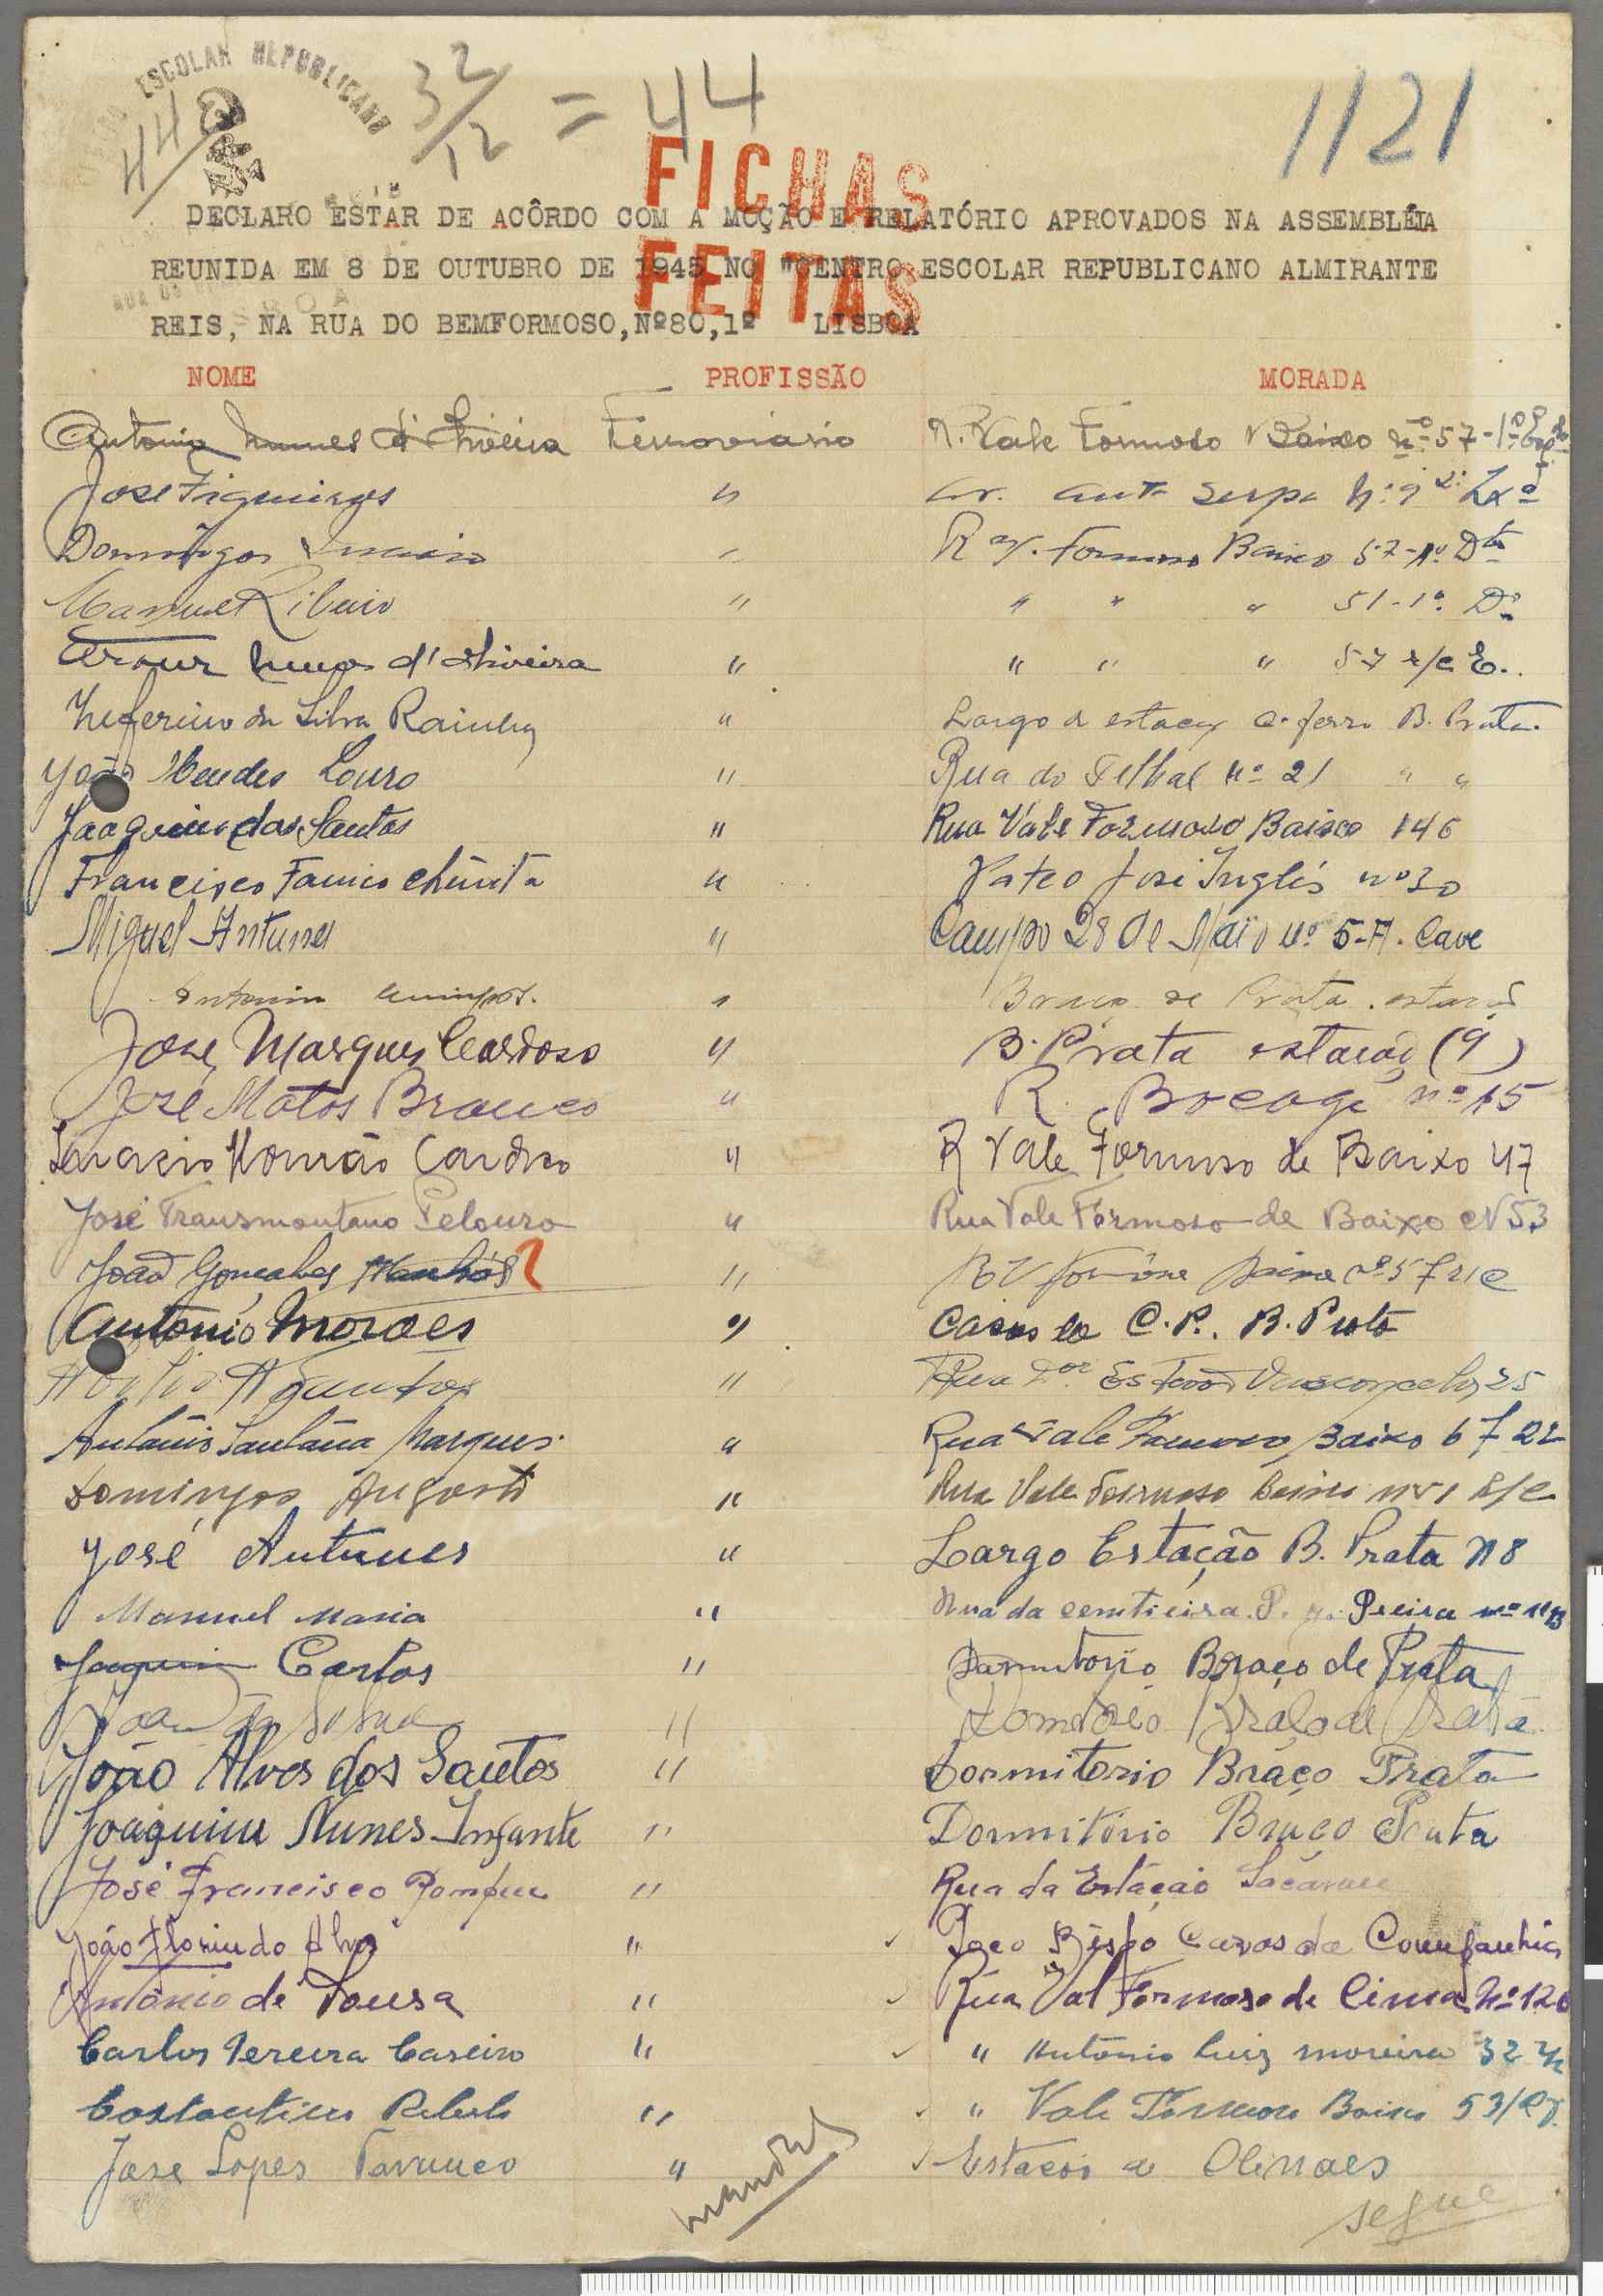 ESCOLAR REPUBLICANO
44
32/12 = 44
1121
FICHAS
FEITAS
DECLARO ESTAR DE ACÔRDO COM A MOÇÃO E RELATÓRIO APROVADOS NA ASSEMBLÉIA
REUNIDA EM 8 DE OUTUBRO DE 1945 NO "CENTRO ESCOLAR REPUBLICANO ALMIRANTE
REIS, NA RUA DO BEMFORMOSO,Nº80,1º LISBOA
NOME PROFISSÃO MORADA
Antonio Nunes d'Oliveira Ferroviario R. Vale Formoso Baixo nº 57-1º
José Figueiras " Av. Antº Serpa Nº 9
Domingos " R V. Formoso Baixo 57-1º Dto
Manuel Ribeiro " " " " 51-1º Dº
Artur Nunes d'Oliveira " " " " 57 r/c E.
Zeferino da Silva Rainha " Largo d estação C. ferro B. Prata
João Mendes Louro " Rua do Telhal nº 21 " "
Joaquim dos Santos " Rua Vale Formoso Baixo 146
Francisco " Pateo José Inglês nº 30
Miguel Antunes " Campo 28 de Maio nº 5-A. Cave
Antonio " Braço de Prata estação
José Marques Cardoso " B. Prata estação (9)
José Matos Branco " R. Bocage nº 15
Mourão Cardoso " R Vale Formoso de Baixo 47
José Transmontano Pelouro " Rua Vale Formoso de Baixo N 53
João Gonçalves " R V Baixo nº 57 r/c
António Moraes " Casas da C.P. B. Prata
" Rua Vasconcelos 25
António Santana Marques " Rua Vale Formoso Baixo 67
Domingos Augosto " Rua Vale Formoso Baixo r/c
José Antunes " Largo Estação B. Prata N 8
Manuel Maria " Rua da
Joaquim Carlos " Dormitorio Braço de Prata
João da " Braço de Prata
João Alves dos Santos " Dormitorio Braço Prata
Joaquim Nunes Infante " Dormitório Braço Prata
José Francisco Pompeu " Rua da Estação Sacavem
João Florindo Alves " Poço Bispo Casas da Companhia
António de Sousa " Rua Val Formoso de Cima Nº 120
Carlos Pereira Caseiro " " António Luiz Moreira 32
Costantino Rebelo " " Vale Formoso Baixo 53
José Lopes " Estação de Olivaes
segue